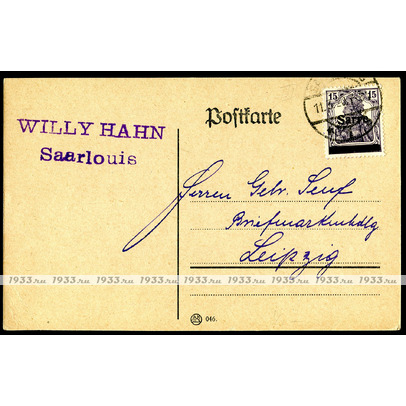 WILLY HAHN
Saarlouis
Postkarte
15 15
Saare
11.
Herren Gebr. Senf
Briefmarkenhdlg
Leipzig
1933.ru 1933.ru 1933.ru 1933.ru 1933.ru 1933.ru 1933.ru 1933.ru 1933.ru
046.